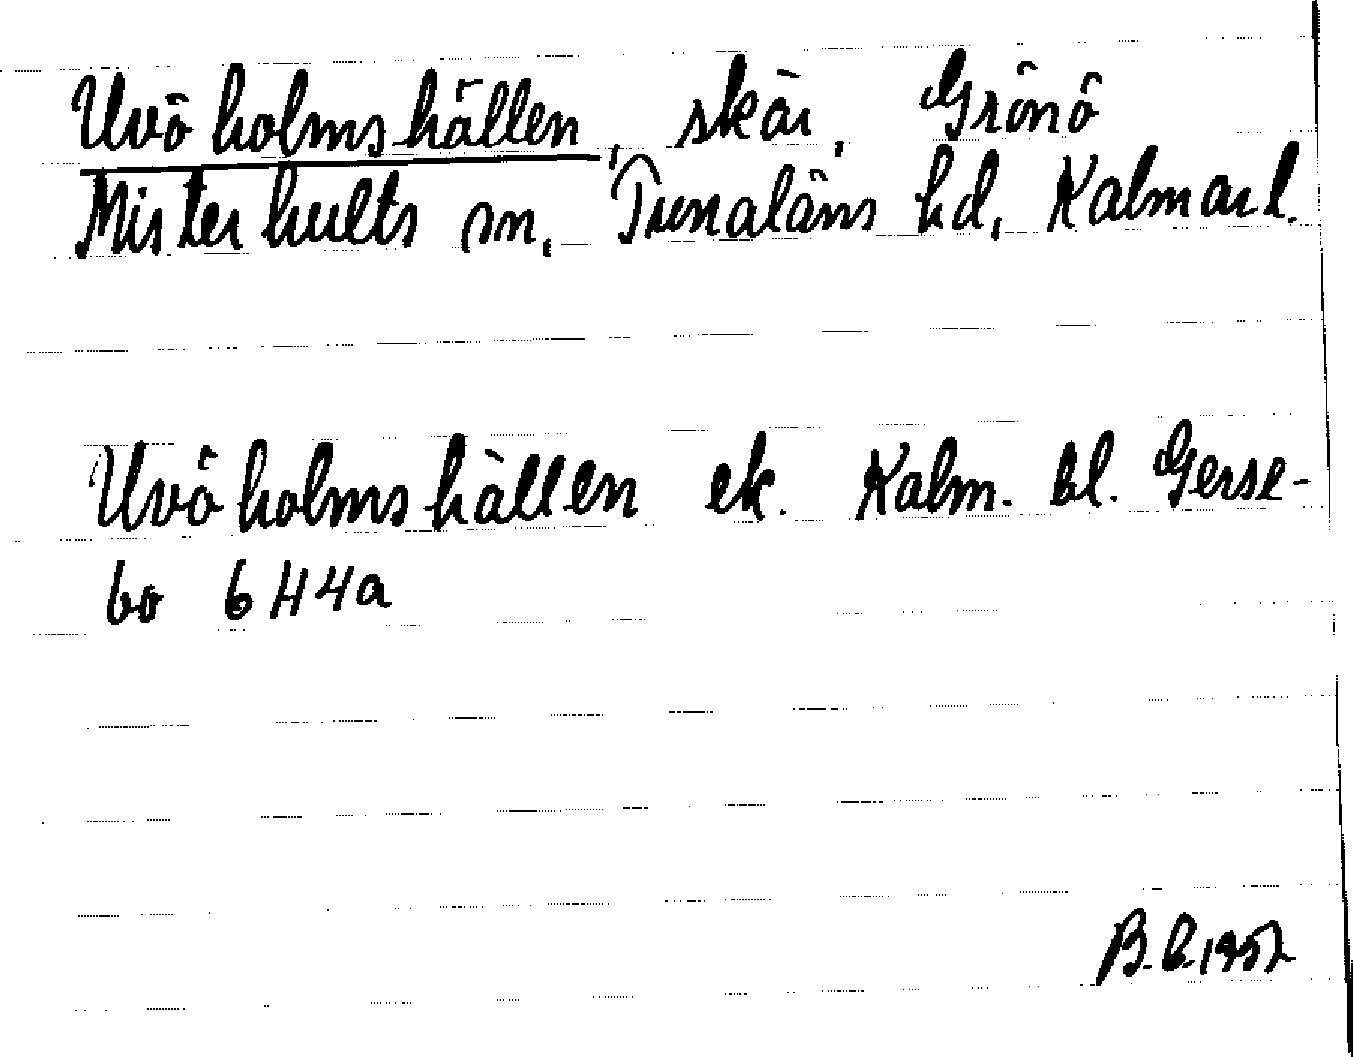 Uvöholmshällen, skär, Grönö
Misterhults sn, Tunaläns hd, Kalmar l.
Uvöholmshällen ek. Kalm. bl. Gerse-
bo 6H4a
B.B.1952